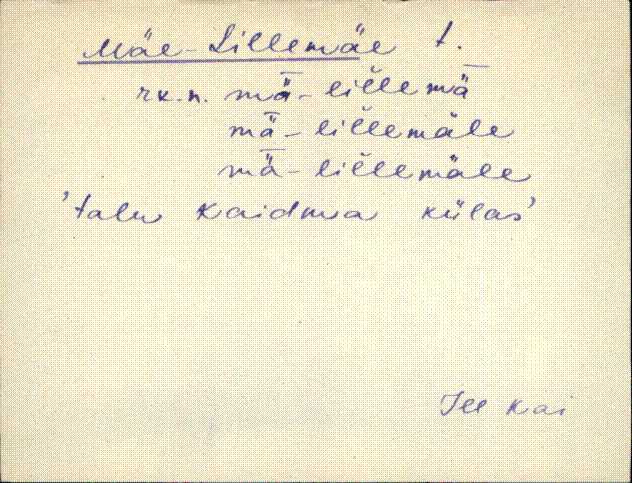 Mäe-Lillemäe t.
rk.n. mǟ-liĺlemǟ
mǟ-liĺlemäle
mǟ-liĺlemäle
'talu Kaidma külas'
Jll Kai